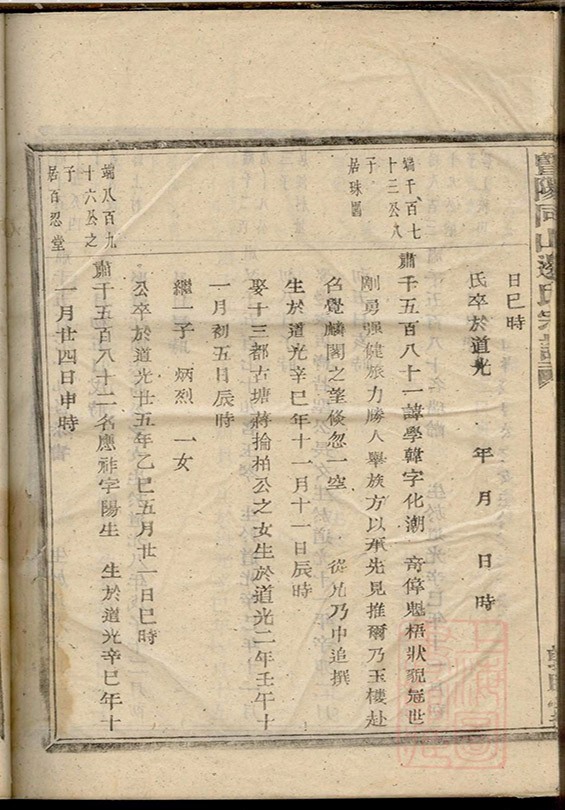 暨陽同山邊氏宗譜
日巳時
氏卒於道光　年　月　日　時
端千百七
十三公八
子
居珠園
肅千五百八十一諱學韓字化潮　奇偉魁梧狀貌冠世
剛勇强健旅力勝人舉族方以承先見推爾乃玉樓赴
召覺麟閣之望倏忽一空　從兄乃中追撰
生於道光辛巳年十一月十一日辰時
娶十三都古塘蔣掄柏公之女生於道光二年壬午十
一月初五日辰時
繼一子　炳烈　一女
公卒於道光廿五年乙巳五月廿一日巳時
端八百九
十六公之
子
居百忍堂
肅千五百八十二名應祚字陽生　生於道光辛巳年十
一月廿四日申時